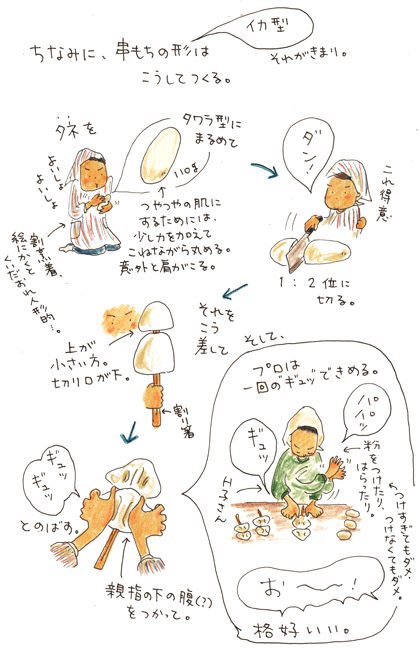 ちなみに、串もちの形は
イカ型
それがきまり。
こうしてつくる。
タネを
よいしょ
よいしょ
タワラ型に
まるめて
110g
つやつやの肌に
するためには、
少し力を加えて
こねながら丸める。
意外と肩がこる。
割烹着、
絵にかくと
くいだおれ人形的…。
ダン!
これ得意
1:2位に
切る。
それを
こう
差して
上が
小さい方。
切り口が下。
割り箸
そして、
ギュッ
ギュッ
とのばす。
親指の下の腹(?)
をつかって。
プロは
一回のギュッでできめる。
パパパッ
ギュッ
粉をつけたり、
はらったり。
つけすぎてもダメ、
つけなくてもダメ。
お〜〜!
格好いい。